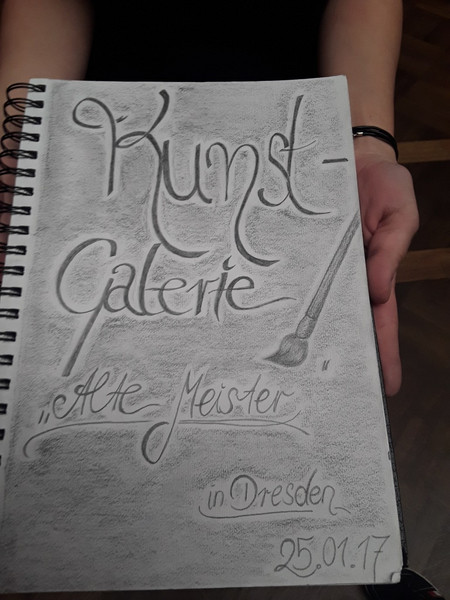 Kunst-
Galerie
„Alte Meister"
in Dresden
25.01.17